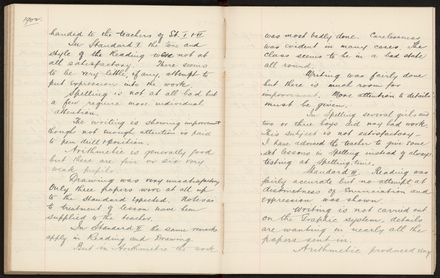 1902
handed to the teachers of St. I & II
In Standard I the tone and
style of the Reading were not at
all satisfactory. There seems
to be very little, if any, attempt to
put expression into the work.
Spelling is not at all bad but
a few require more individual
attention.
The writing is showing improvement
though not enough attention is paid
to pen drill & position.
Arithmetic is generally good
but there are five or six very
weak pupils.
Drawing was very unsatisfactory
Only three papers were at all up
to the Standard expected. Notes as
to treatment of lesson have been
supplied to the teacher.
In Standard II the same remarks
apply in Reading and Drawing.
But in Arithmetic the work
was most badly done. Carelessness
was evident in many cases. The
class seems to be in a bad state
all round.
Writing was fairly done
but there is much room for
improvement. More attention to details
must be given.
In Spelling several girls and
two or three boys had very bad work.
This subject is not satisfactory.
I have advised the teacher to give some
set lessons in Spelling instead of always
testing at Spelling time.
Standard III. Reading was
fairly accurate but no attempt at
distinctness of enunciation and
expression was shown.
Writing is not carried out
on the Graphic system, details
are wanting in nearly all the
papers sent in.
Arithmetic produced very